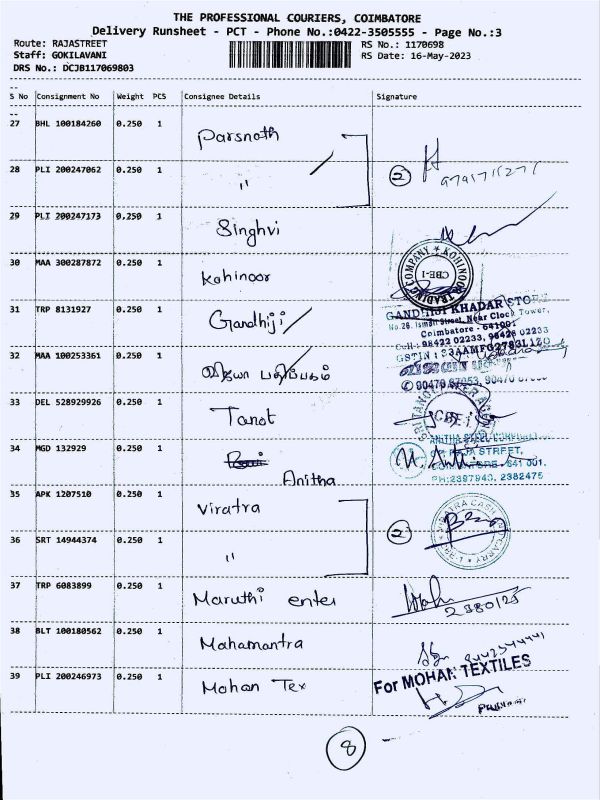 THE PROFESSIONAL COURIERS, COIMBATORE
Delivery Runsheet - PCT - Phone No.:0422-3505555 - Page No.:3
Route: RAJASTREET RS No.: 1170698
Staff: GOKILAVANI RS Date: 16-May-2023
DRS No.: DCJB117069803
S No Consignment No Weight PCS Consignee Details Signature
27 BHL 100184260 0.250 1 Parsnath
28 PLI 200247062 0.250 1 " 2
29 PLI 200247173 0,250 1 Singhvi
30 MAA 300287872 0.250 1 Kohinoor
KOHINOOR TRADING COMPANY
CBE-1
31 TRP 8131927 0.250 1 Gandhiji
GANDHIJI KHADAR STORE
No.26, Ismail Street, Near Clock Tower,
Coimbatore - 641001
Cell : 98422 02233, 98426 02233
32 MAA 100253361 0.250 1 விஜயா பதிப்பகம்
33 DEL 528929926 0.250 1 Tanot
CBE-1
34 MGD 132929 0.250 1 Anitha
ANITHA STEEL CORPORATION
RAJA STREET,
COIMBATORE - 641 001.
PH:2397943, 2382475
35 APK 1207510 0.250 1 Viratra
VIRATRA CASH AND CARRY
36 SRT 14944374 0.250 1 " 2
37 TRP 6083899 0.250 1 Maruthi enter
38 BLT 100180562 0.250 1 Mahamantra
39 PLI 200246973 0.250 1 Mohan Tex
For MOHAN TEXTILES
8